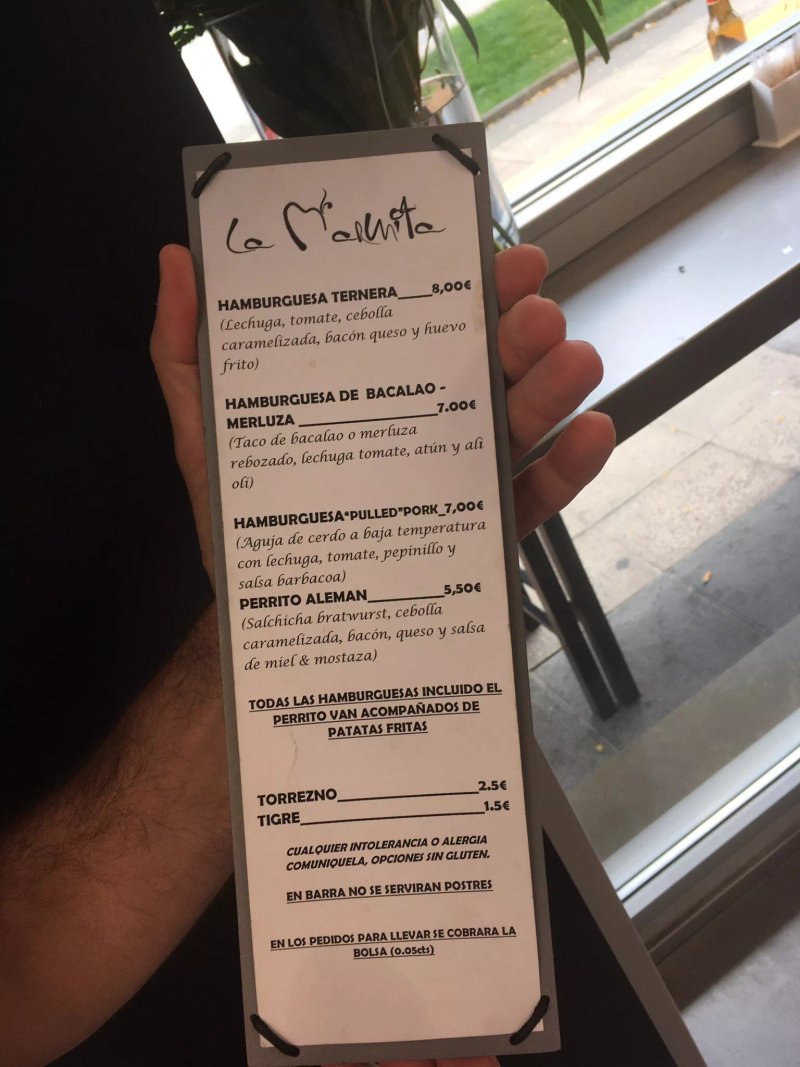 La Marmita
HAMBURGUESA TERNERA_____8,00€
(Lechuga, tomate, cebolla
caramelizada, bacón queso y huevo
frito)
HAMBURGUESA DE BACALAO -
MERLUZA ____________________7.00€
(Taco de bacalao o merluza
rebozado, lechuga tomate, atún y ali
oli)
HAMBURGUESA"PULLED"PORK_7,00€
(Aguja de cerdo a baja temperatura
con lechuga, tomate, pepinillo y
salsa barbacoa)
PERRITO ALEMAN___________5,50€
(Salchicha bratwurst, cebolla
caramelizada, bacón, queso y salsa
de miel & mostaza)
TODAS LAS HAMBURGUESAS INCLUIDO EL
PERRITO VAN ACOMPAÑADOS DE
PATATAS FRITAS
TORREZNO____________________2.5€
TIGRE__________________________1.5€
CUALQUIER INTOLERANCIA O ALERGIA
COMUNIQUELA, OPCIONES SIN GLUTEN.
EN BARRA NO SE SERVIRAN POSTRES
EN LOS PEDIDOS PARA LLEVAR SE COBRARA LA
BOLSA (0.05cts)